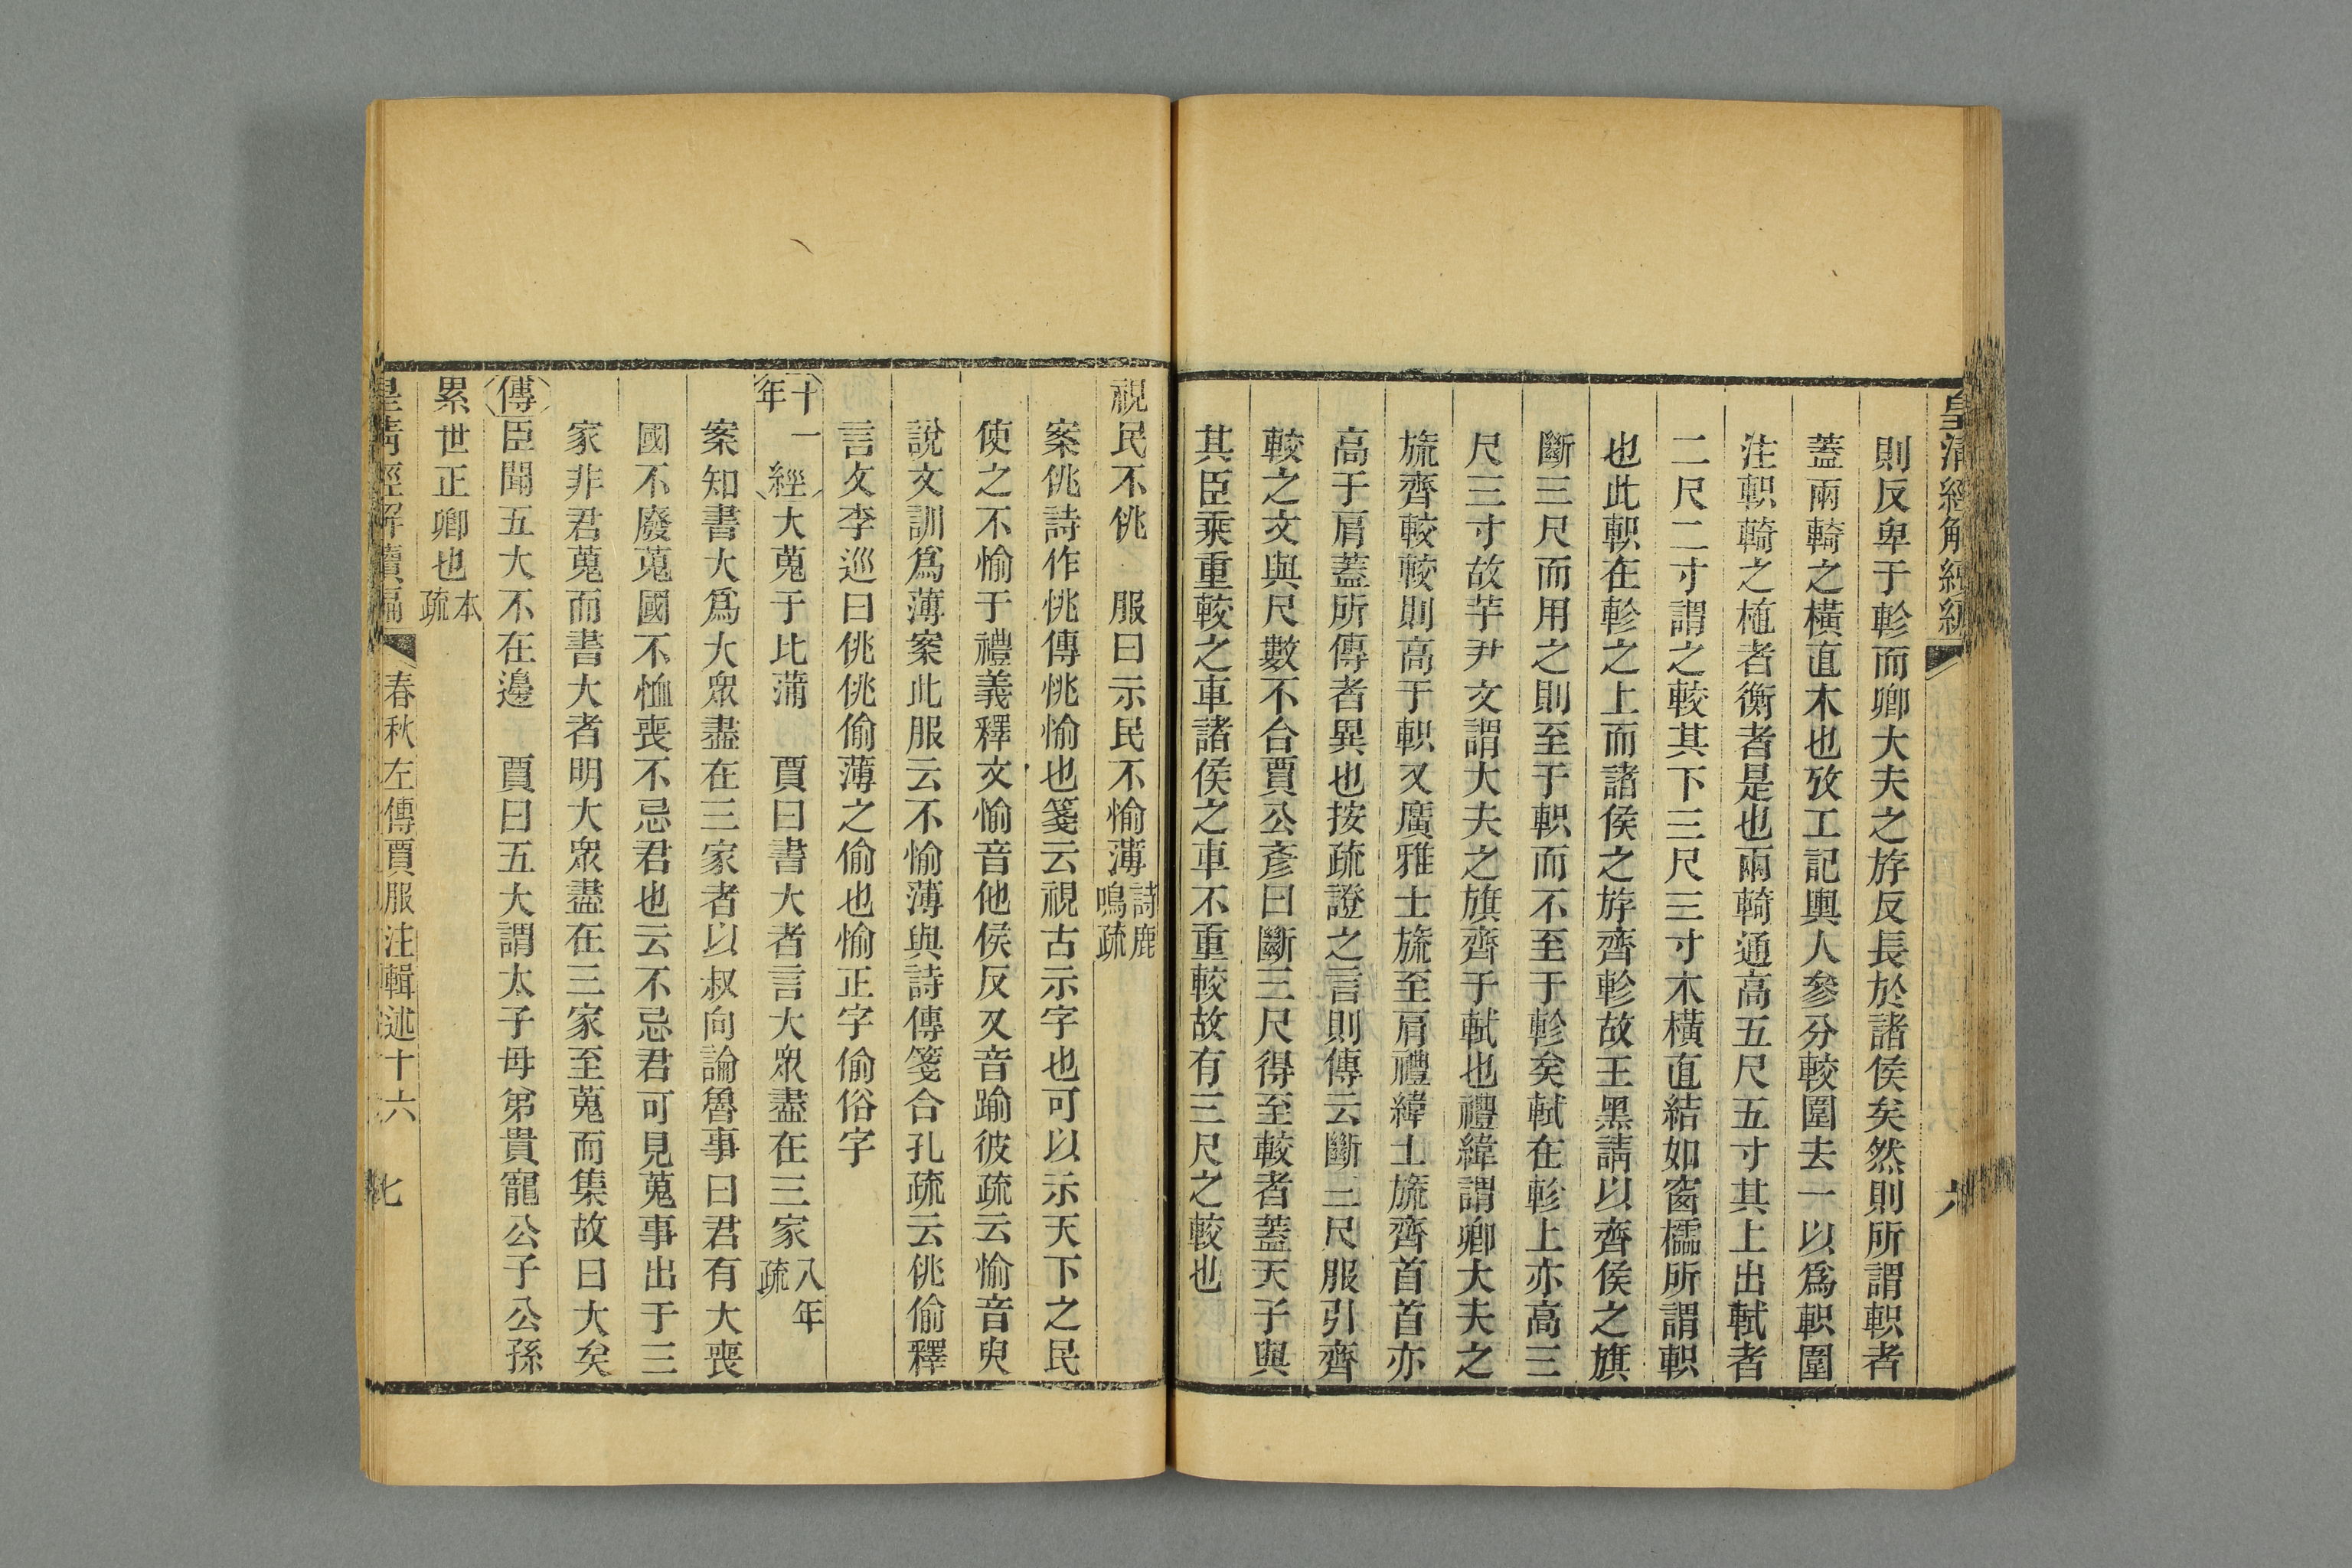 則反卑于軫而卿大夫之斿反長於諸侯矣然則所謂軹者
蓋兩輢之橫直木也攷工記輿人參分較圍去一以爲軹圍
注軹輢之植者衡者是也兩輢通高五尺五寸其上出軾者
二尺二寸謂之較其下三尺三寸木橫直結如窗櫺所謂軹
也此軹在軫之上而諸侯之斿齊軫故王黑請以齊侯之旗
斷三尺而用之則至于軹而不至于軫矣軾在軫上亦高三
尺三寸故芋尹文謂大夫之旗齊于軾也禮緯謂卿大夫之
旒齊較較則高于軹又廣雅士旒至肩禮緯士旒齊首首亦
高于肩蓋所傳者異也按疏證之言則傳云斷三尺服引齊
較之文與尺數不合賈公彥曰斷三尺得至較者蓋天子與
其臣乘重較之車諸侯之車不重較故有三尺之較也
視民不佻 服曰示民不愉薄詩鹿鳴疏
案佻詩作恌傳恌愉也箋云視古示字也可以示天下之民
使之不愉于禮義釋文愉音他侯反又音踰彼疏云愉音臾
說文訓爲薄案此服云不愉薄與詩傳箋合孔疏云佻偷釋
言文李巡曰佻佻偷薄之偷也愉正字偷俗字
十一年經大蒐于比蒲 賈曰書大者言大衆盡在三家八年疏
案知書大爲大衆盡在三家者以叔向論魯事曰君有大喪
國不廢蒐國不恤喪不忌君也云不忌君可見蒐事出于三
家非君蒐而書大者明大衆盡在三家至蒐而集故曰大矣
傳臣聞五大不在邊 賈曰五大謂太子母弟貴寵公子公孫
累世正卿也本疏
皇清經解續編 春秋左傳賈服注輯述十六 七